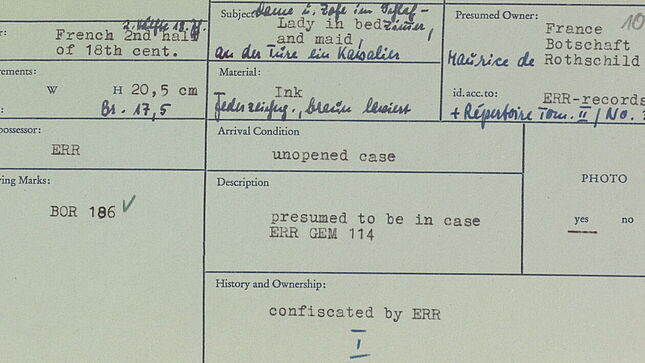 2. Hälfte 18. Jh.
French 2nd half
of 18th cent.
Subject:
Dame u. Zofe im Schlaf-
Lady in bed zimmer,
and maid,
an der Türe ein Kavalier
Presumed Owner:
10
France
Botschaft
Maurice de Rothschild
rements:
W H 20,5 cm
Br. 17,5
Material:
Ink
Federzeichng., braun laviert
id.acc.to:
ERR-records
+ Répertoire Tom. II / No.
ossessor:
ERR
Arrival Condition
unopened case
ing Marks:
BOR 186 ✓
Description
presumed to be in case
ERR GEM 114
PHOTO
yes no
History and Ownership:
confiscated by ERR
I